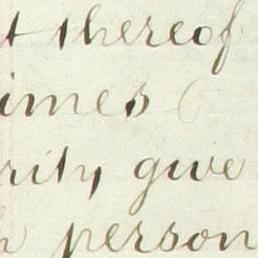 t thereof
imes
rity give
h person